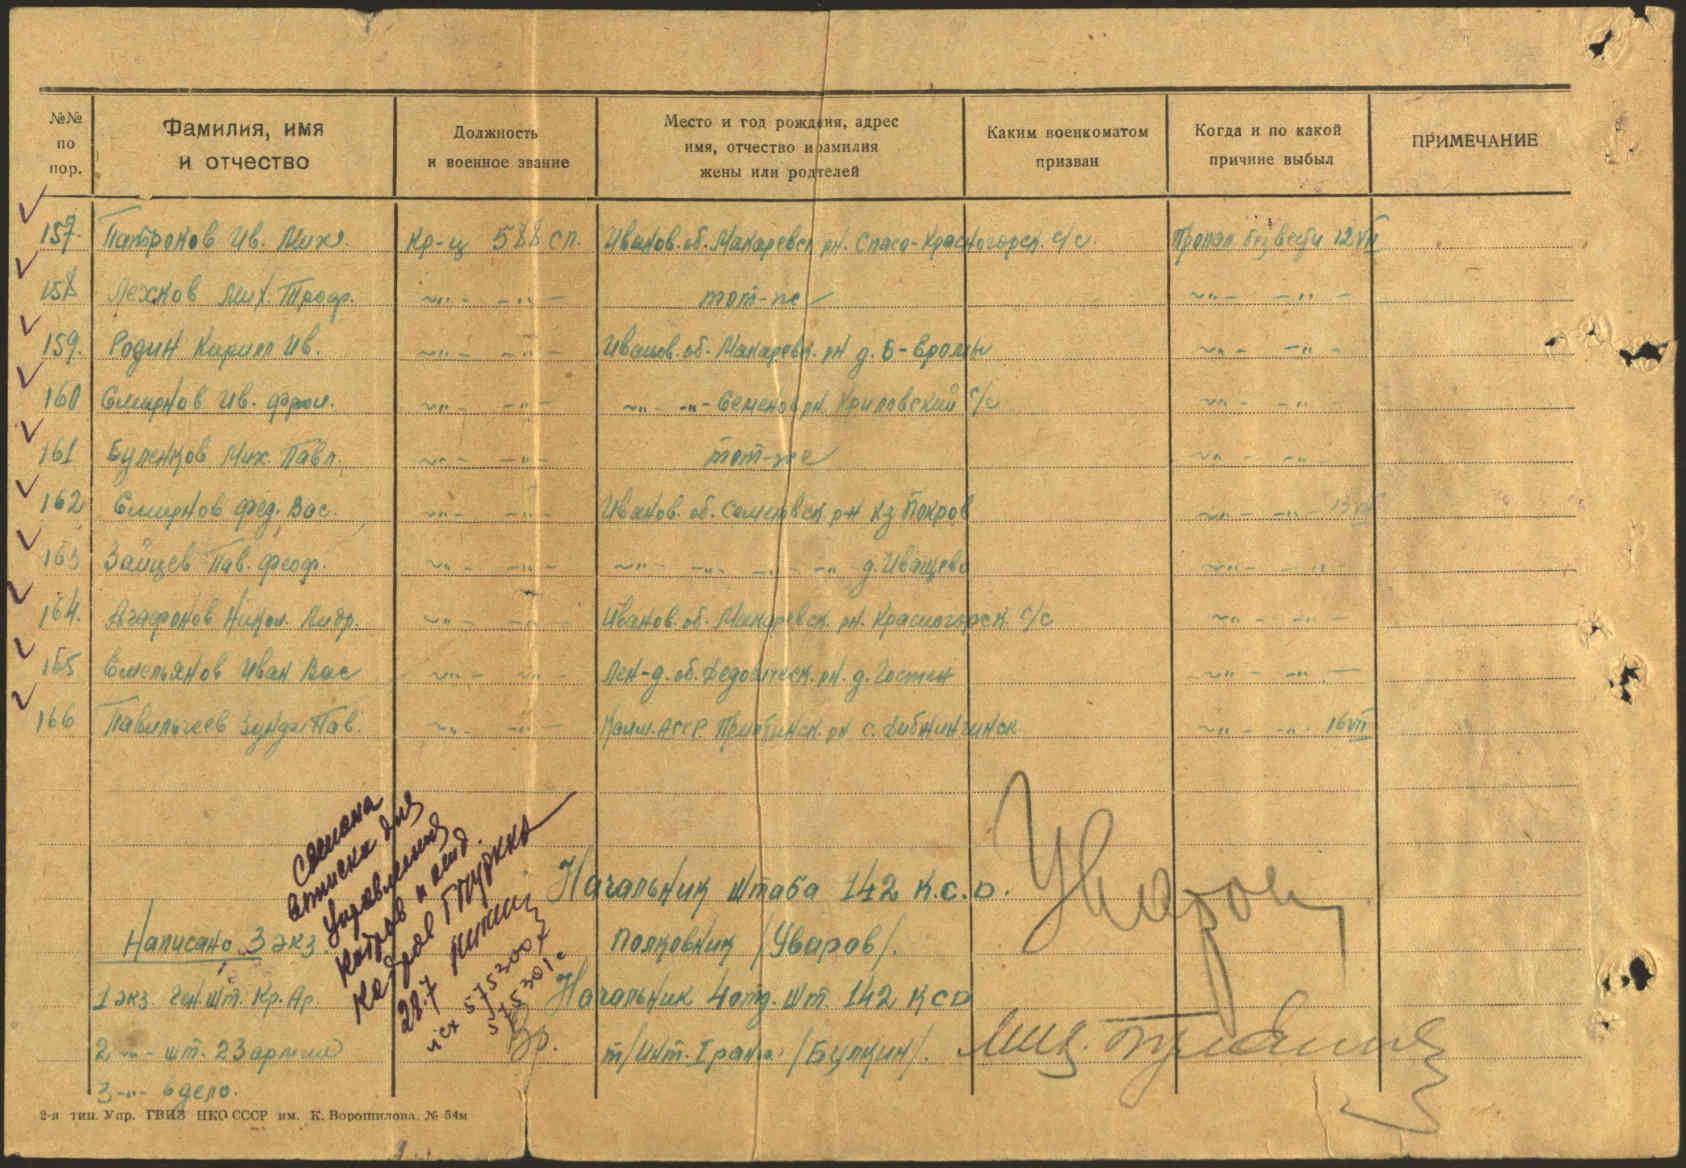 №№ по пор.
Фамилия, имя и отчество
Должность и военное звание
Место и год рождения, адрес имя, отчество и фамилия жены или родителей
Каким военкоматом призван
Когда и по какой причине выбыл
ПРИМЕЧАНИЕ
157. Патроков Ив. Мих. Кр-ц 588 сп. Иванов. об. Макаревск рн. Спасо-Красногорск. с/с. Пропал безвести 12 VII
158 Лехков Мих. Троф. ~"- -"- тот-же ~"- -"-
159. Родин Кирилл Ив. ~"- -"- Иванов. об. Макаревск. рн д. Б- ~"- -"-
160 Смирнов Ив. Фрол. ~"- -"- ~"- -"- Семенов рн. Криловский с/с ~"- -"-
161 Буленков Мих. Павл. ~"- -"- тот-же ~"- -"-
162 Смирнов Фед. Вас. ~"- -"- Иванов. об. Семеновск р-н Покров ~"- -"- 13 VII
163 Зайцев Пав. Феоф. ~"- -"- ~"- -"- -"- -"- д. Иващево ~"- -"-
164. Агафонов Никол. Митр. ~"- -"- Иванов. об. Макаревск. рн. Красногорск. с/с ~"- -"-
165 Емельянов Иван Вас ~"- -"- Лен-д. об. рн. д. Гостин ~"- -"-
166 Пав. ~"- -"- АССР. рн с. ~"- -"- 16 VII
Начальник штаба 142 К.С.D.
Полковник /Уваров/.
Уваров
Начальник 4 отд. шт. 142 КСD
т/инт. I ранга /Булкин/.
Написано 3 экз.
1 экз. Ген. шт. Кр. Ар.
2 -"- шт. 23 армии
3 -"- в дело.
для
Управления
кадров
28.7
исх 575300
575301с
Вр.
2-я тип. Упр. ГВИЗ НКО СССР им. К. Ворошилова. № 54м